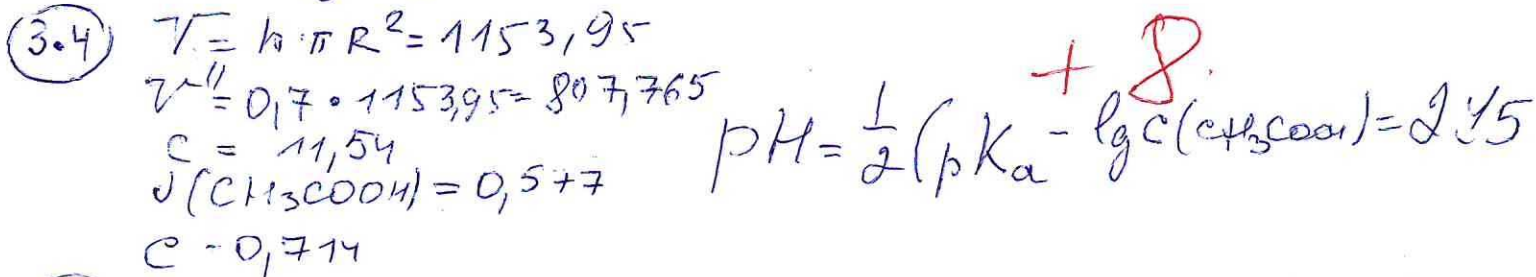 3.4 V = h·πR² = 1153,95
V" = 0,7 · 1153,95 = 807,765
C = 11,54
ν(CH3COOH) = 0,577
C - 0,714
+ 8.
pH = 1/2 (pKa - lg c(CH3COOH) = 2,45